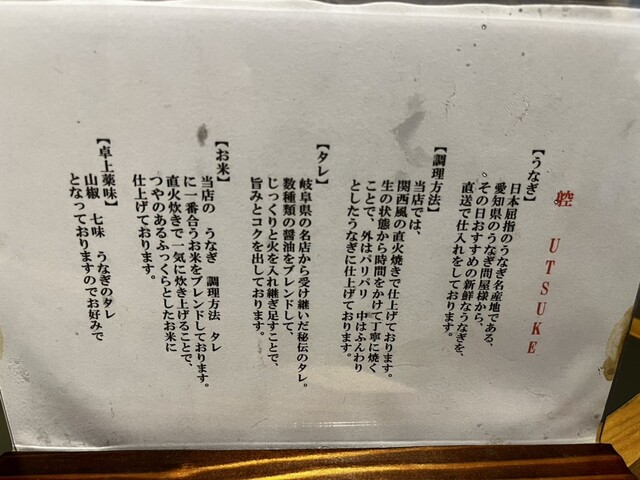 躻 UTSUKE
【うなぎ】
日本屈指のうなぎ名産地である、
愛知県のうなぎ問屋様から、
その日おすすめの新鮮なうなぎを、
直送で仕入れをしております。
【調理方法】
当店では、
関西風の直火焼きで仕上げております。
生の状態から時間をかけて丁寧に焼く
ことで、外はパリパリ 中はふんわり
としたうなぎに仕上げております。
【タレ】
岐阜県の名店から受け継いだ秘伝のタレ。
数種類の醤油をブレンドして、
じっくりと火を入れ継ぎ足すことで、
旨みとコクを出しております。
【お米】
当店の うなぎ 調理方法 タレ
に一番合うお米をブレンドしております。
直火炊きで一気に炊き上げることで、
つやのあるふっくらとしたお米に
仕上げております。
【卓上薬味】
山椒 七味 うなぎのタレ
となっておりますのでお好みで